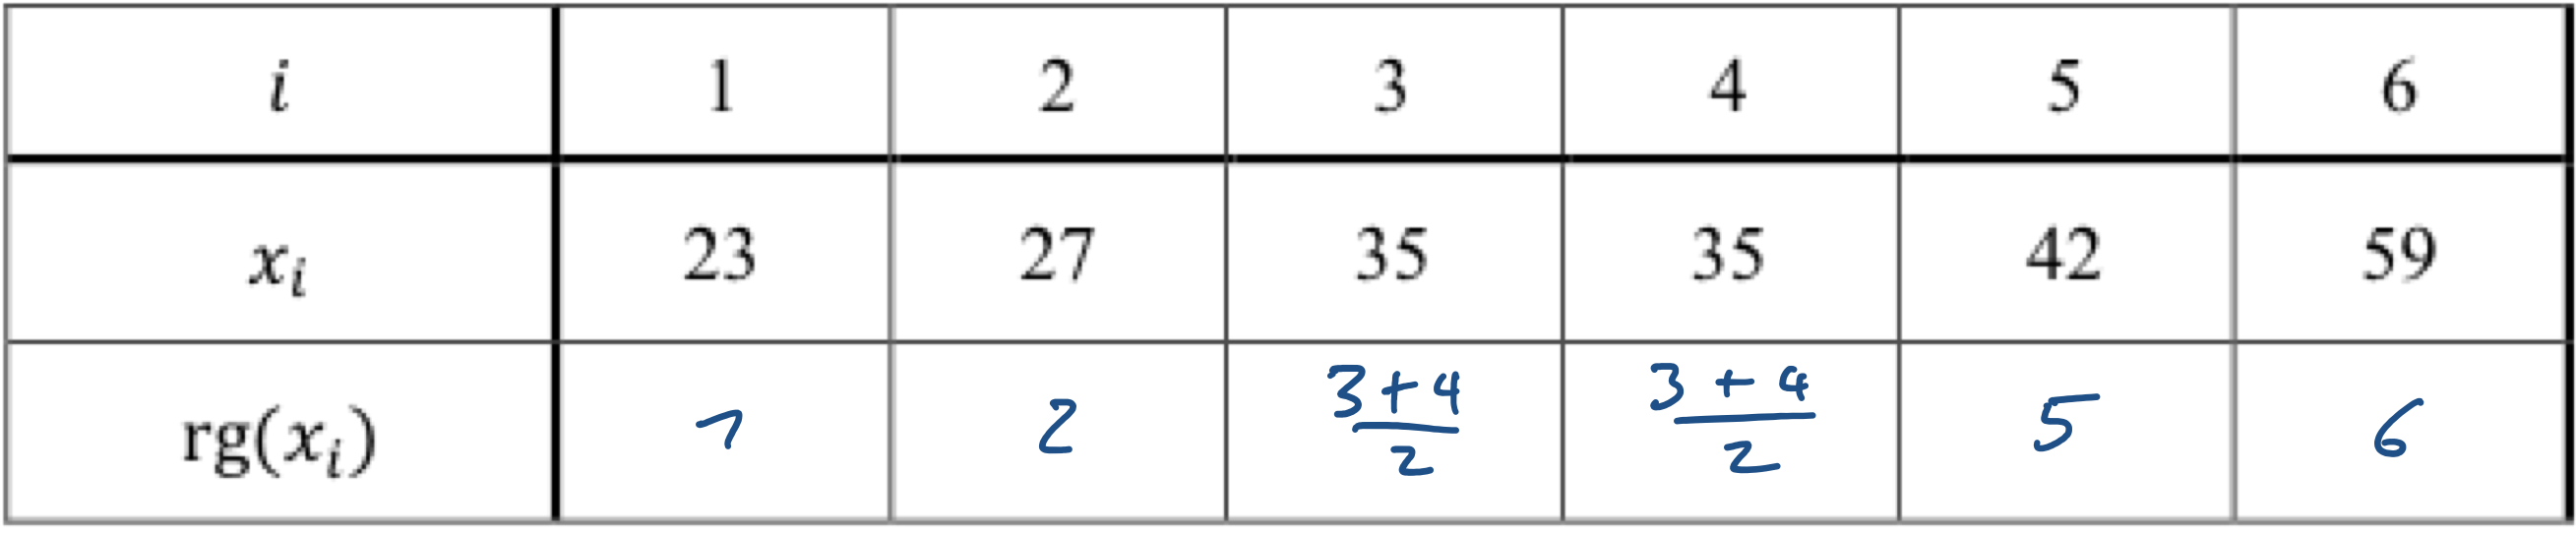 i 1 2 3 4 5 6
xᵢ 23 27 35 35 42 59
rg(xᵢ) 1 2 (3+4)/2 (3+4)/2 5 6